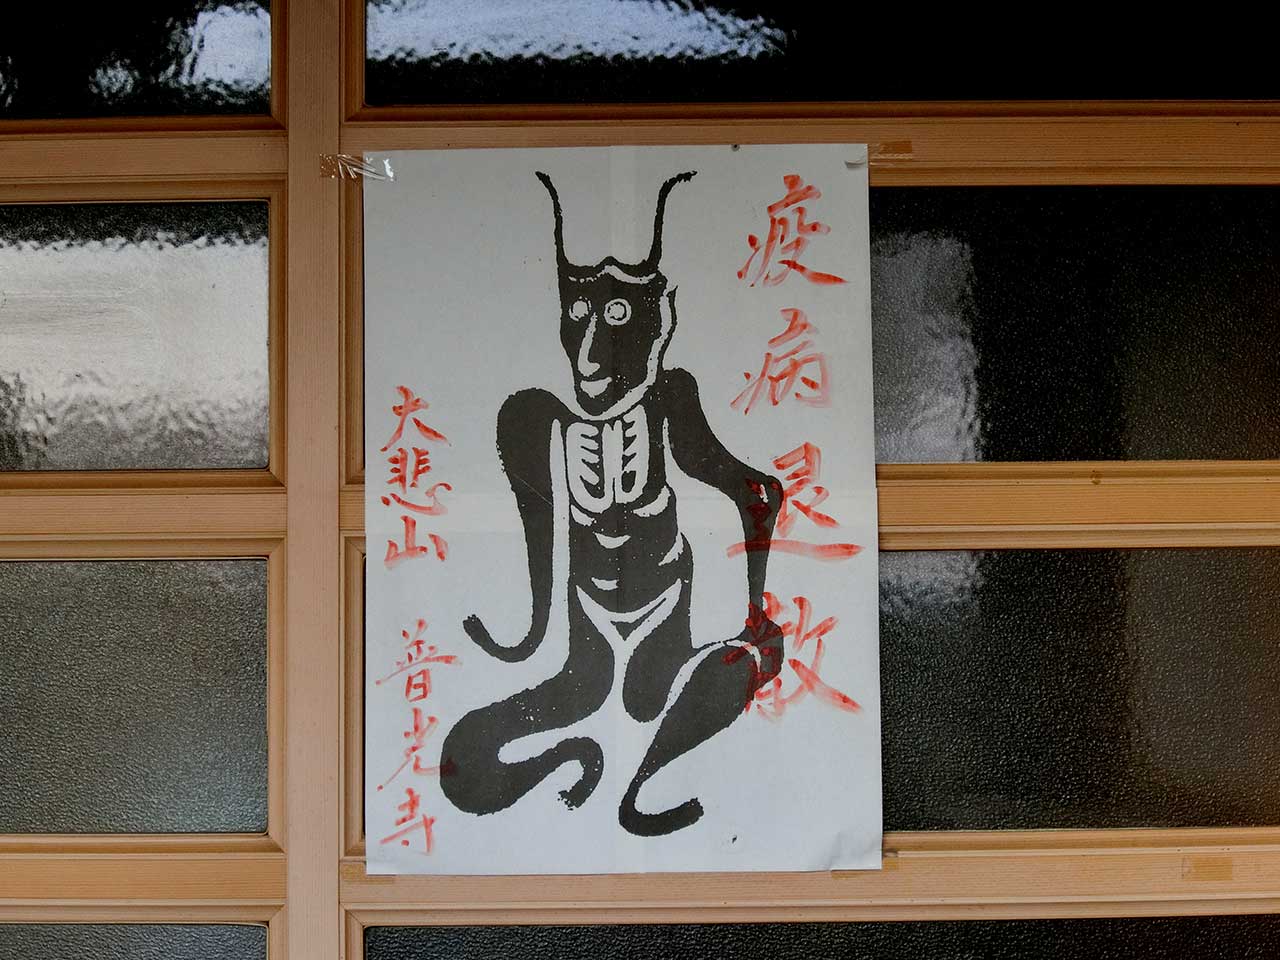 疫病退散
大悲山 普光寺